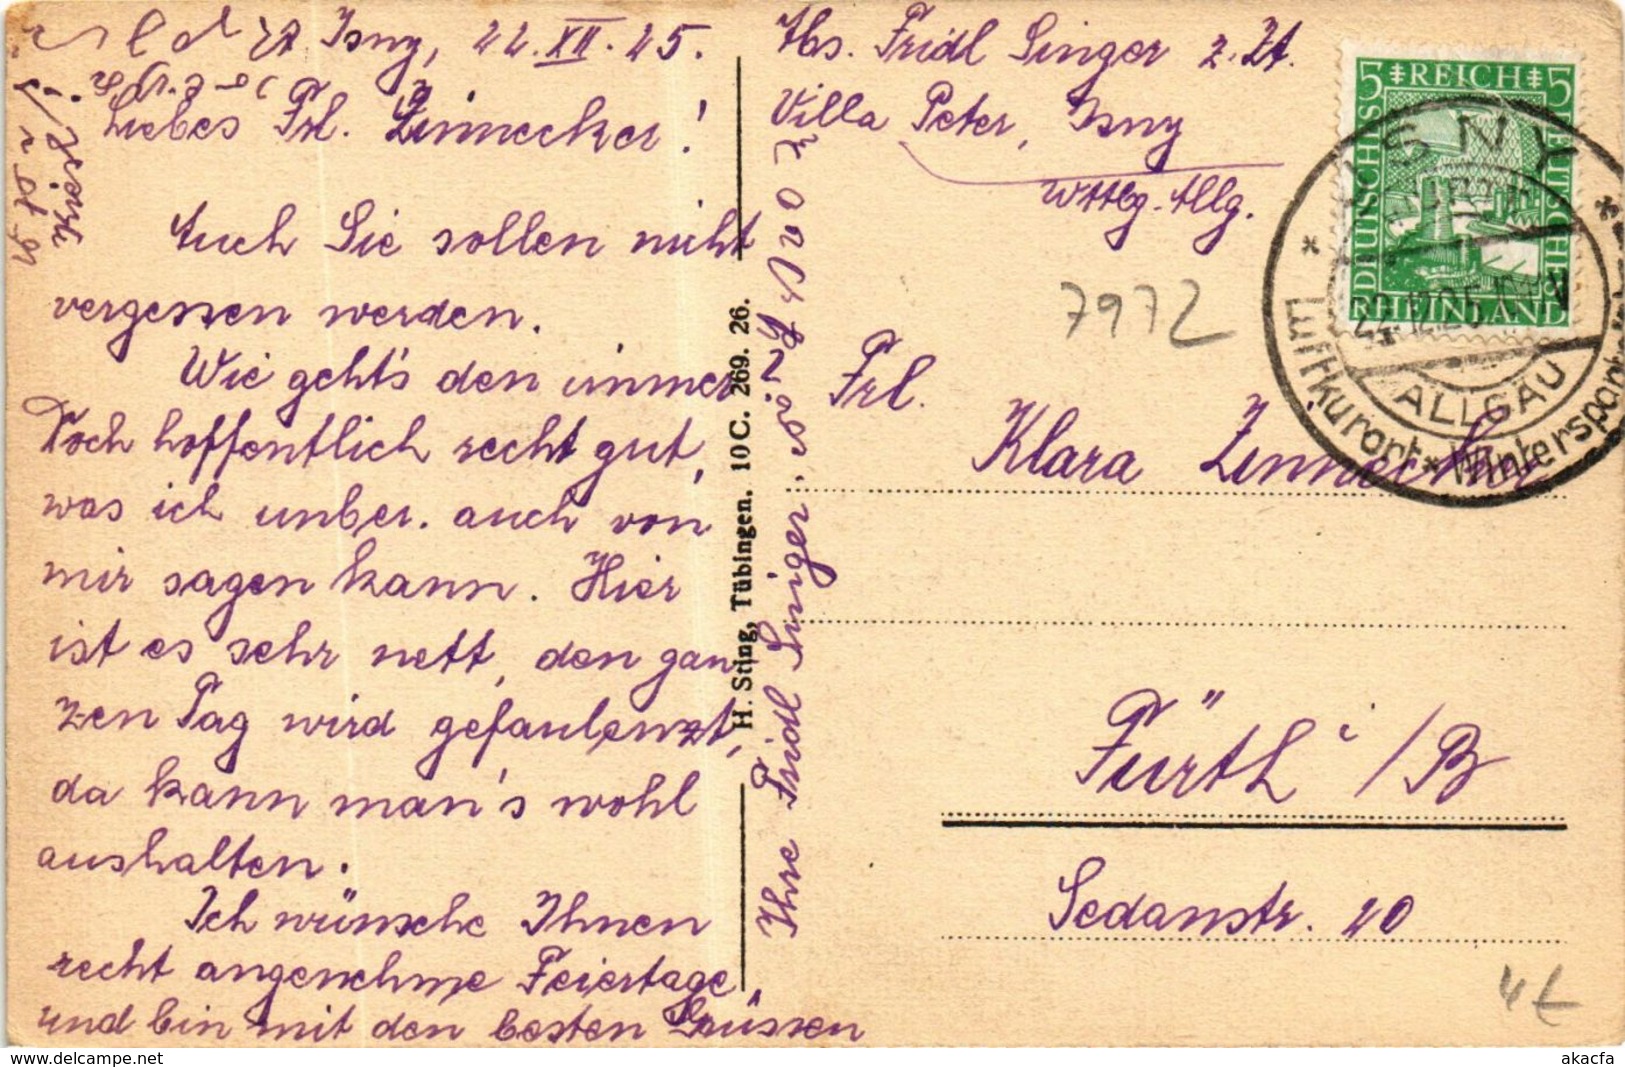 Isny, 22. XII. 25.
Liebes Frl. Zinnecker!
Auch Sie sollen nicht
vergessen werden.
Wie geht's den immer
Doch hoffentlich recht gut,
was ich unber. auch von
mir sagen kann. Hier
ist es sehr nett, den gan
zen Tag wird gefaulenzt,
da kann man's wohl
aushalten.
Ich wünsche Ihnen
recht angenehme Feiertage,
und bin mit den besten Grüssen
Ihre Fridl Singer.
H. Sting, Tübingen. 10C. 269. 26.
Abs. Fridl Singer z. Zt.
Villa Peter, Isny
Wttbg. Allg.
7972
5 REICH 5
DEUTSCHES
RHEINLAND
ISNY
22.12.25
ALLGÄU
Luftkurort * Wintersportpl
Frl.
Klara Zinnecker
Fürth i/B
Sedanstr. 20
4€
akacfa